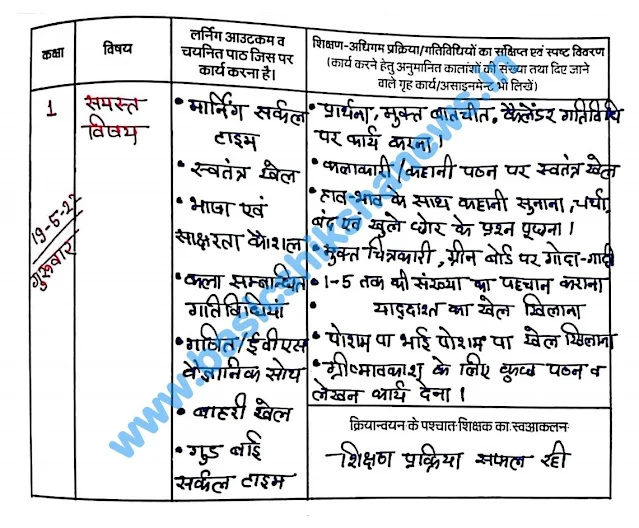 कक्षा
विषय
लर्निंग आउटकम व
चयनित पाठ जिस पर
कार्य करना है।
शिक्षण-अधिगम प्रक्रिया/गतिविधियों का संक्षिप्त एवं स्पष्ट विवरण
(कार्य करने हेतु अनुमानित कालांशों की संख्या तथा दिए जाने
वाले गृह कार्य/असाइनमेन्ट भी लिखें)
1
समस्त
विषय
19-5-22
गुरूवार
• मार्निंग सर्कल
टाइम
• स्वतंत्र खेल
• भाषा एवं
साक्षरता कौशल
• कला सम्बान्धित
गतिविधियां
• गणित/ईवीएस
वैज्ञानिक सोच
• बाहरी खेल
• गुड बाई
सर्कल टाइम
• प्रार्थना, मुक्त बातचीत, कैलेंडर गतिविधि
पर कार्य करना।
• कलाकारी/कहानी पठन पर स्वतंत्र खेल
• हाव-भाव के साथ कहानी सुनाना, चर्चा,
बंद एवं खुले छोर के प्रश्न पूछना।
• मुक्त चित्रकारी, ग्रीन बोर्ड पर गोदा-गादी
• 1-5 तक की संख्या का पहचान कराना
याददाश्त का खेल खिलाना
• पोशम पा भाई पोशम पा खेल खिलाना
• ग्रीष्मावकाश के लिए कुछ पठन व
लेखन कार्य देना।
क्रियान्वयन के पश्चात शिक्षक का स्वआकलन
शिक्षण प्रक्रिया सफल रही
www.basicshikshanews.in